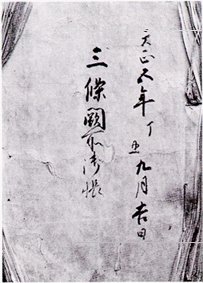 天正五年丁丑九月吉日
三條闕所御帳